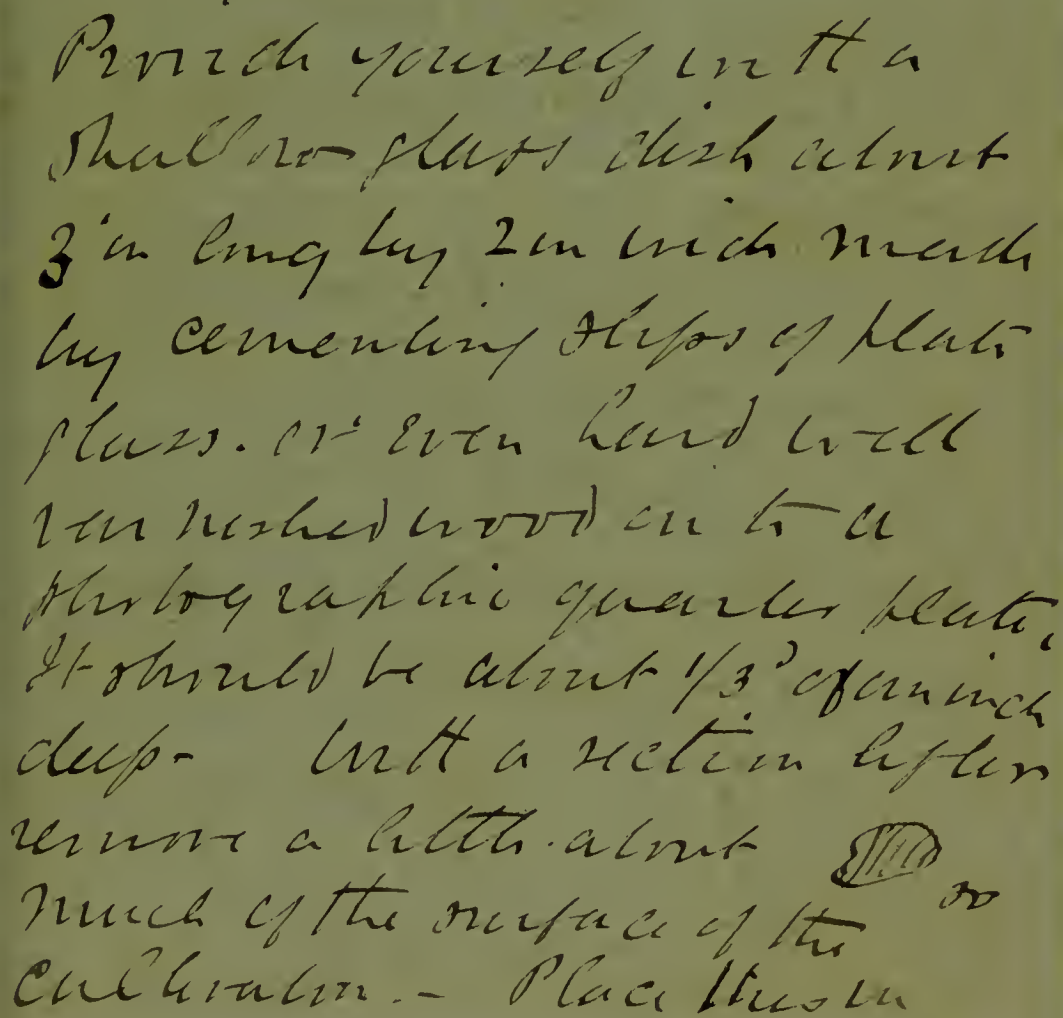 Provide yourself with a
shallow glass dish about
3 in long by 2 in wide made
by cementing slips of plate
glass. or even hard well
varnished wood on to a
photographic quarter plate.
It should be about 1/3 of an inch
deep - With a section lifter
remove a little about
so
much of the surface of the
cultivation. - Place this in